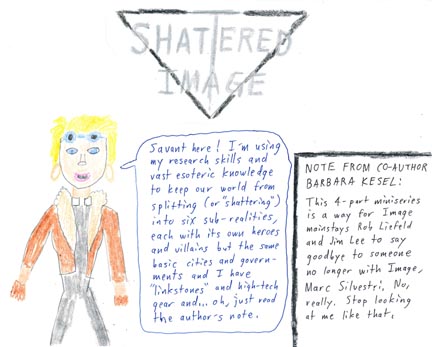 SHATTERED
IMAGE
Savant here! I'm using
my research skills and
vast esoteric knowledge
to keep our world from
splitting (or "shattering")
into six sub-realities,
each with its own heroes
and villains but the same
basic cities and govern-
ments and I have
"linkstones" and high-tech
gear and... oh, just read
the author's note.
NOTE FROM CO-AUTHOR
BARBARA KESEL:
This 4-part miniseries
is a way for Image
mainstays Rob Liefeld
and Jim Lee to say
goodbye to someone
no longer with Image,
Marc Silvestri. No,
really. Stop looking
at me like that.